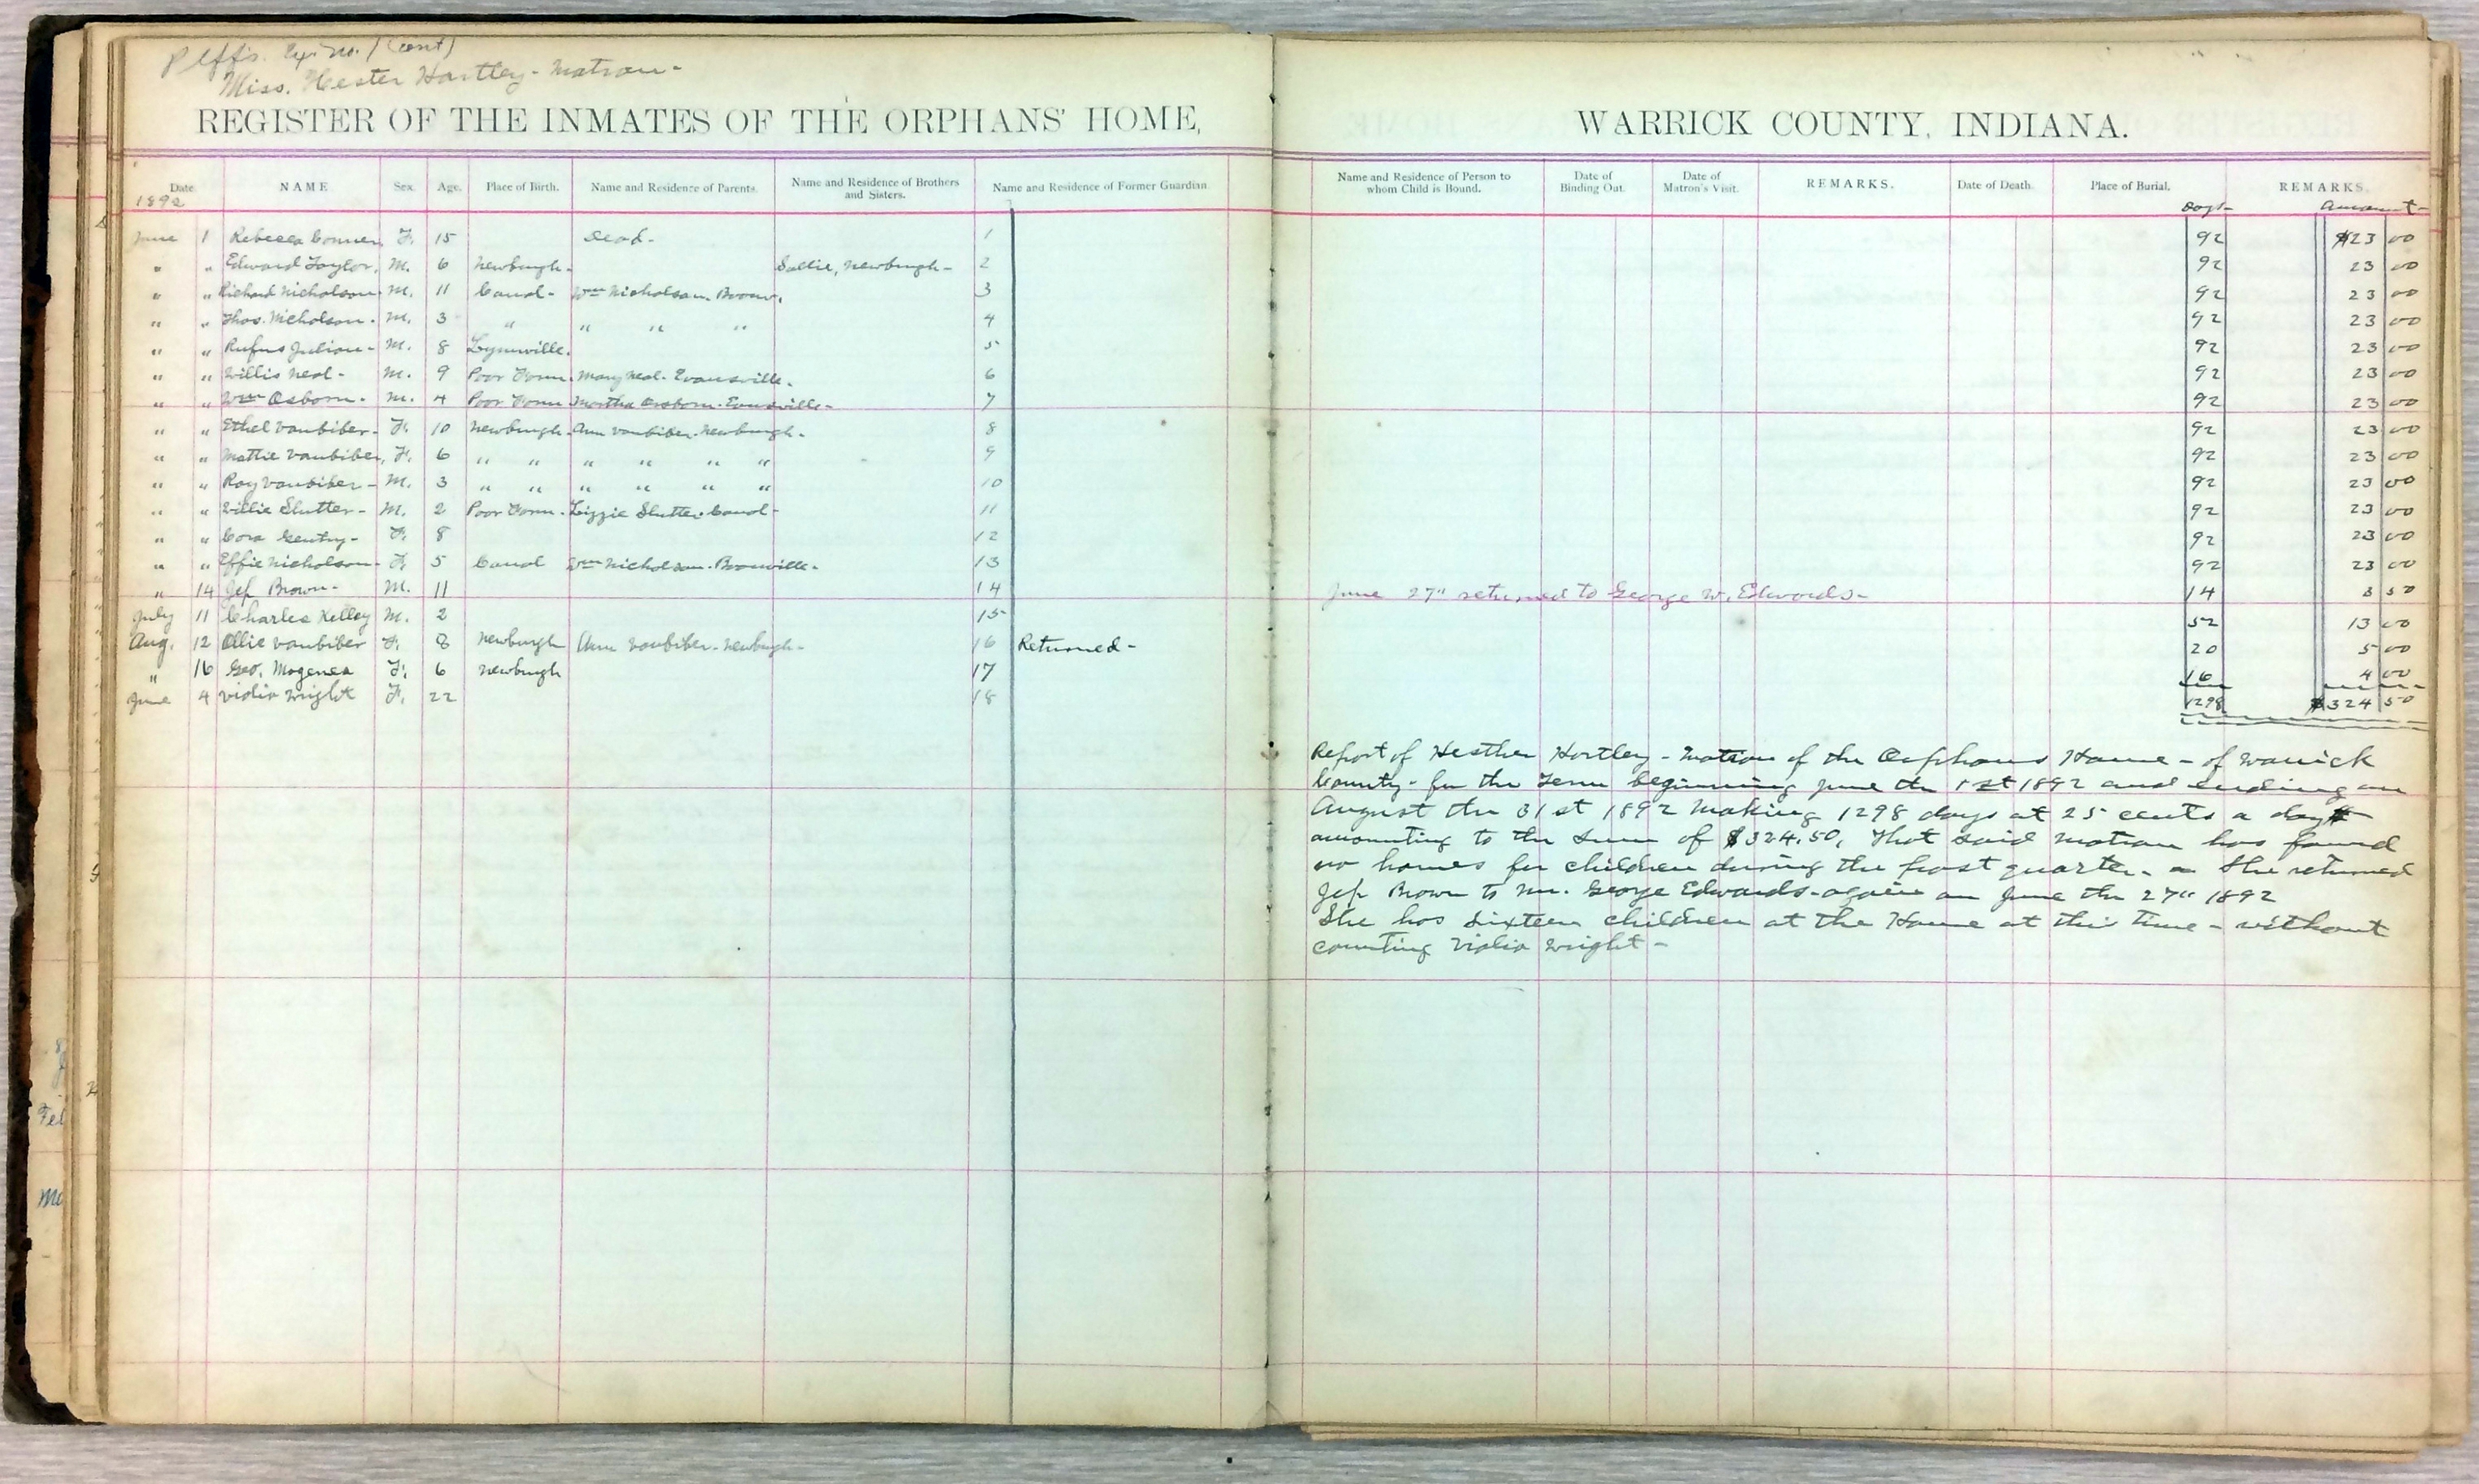 Plffs. Ex. No. 1 (cont)
Miss. Hester Hartley - Matron -
REGISTER OF THE INMATES OF THE ORPHANS' HOME, WARRICK COUNTY, INDIANA.
Date NAME Sex. Age. Place of Birth. Name and Residence of Parents. Name and Residence of Brothers and Sisters. Name and Residence of Former Guardian. Name and Residence of Person to whom Child is Bound. Date of Binding Out. Date of Matron's Visit. REMARKS. Date of Death. Place of Burial. REMARKS.
1892 Days - Amount -
June 1 Rebecca Conner F. 15 Dead - 1 92 $23 00
" " Edward Taylor. M. 6 Newburgh - Sallie, Newburgh - 2 92 23 00
" " Richard Nicholson - M. 11 Canal - Wm Nicholson. Boonv. 3 92 23 00
" " Thos. Nicholson - M. 3 " " " " 4 92 23 00
" " Rufus Julian - M. 8 Lynnville. 5 92 23 00
" " Willis Neal - M. 9 Poor Farm. Mary Neal - Evansville. 6 92 23 00
" " Wm Osborn - M. 4 Poor Farm Martha Osborn - Evnsville - 7 92 23 00
" " Ethel Vanbiber - F. 10 Newburgh - Ann Vanbiber - Newburgh - 8 92 23 00
" " Mattie Vanbiber, F. 6 " " " " " " 9 92 23 00
" " Roy Vanbiber - M. 3 " " " " " " 10 92 23 00
" " Willie Slutter - M. 2 Poor Farm - Lizzie Slutter Canal - 11 92 23 00
" " Cora Gentry - F. 8 12 92 23 00
" " Effie Nicholson - F. 5 Canal Wm Nicholson - Boonville - 13 92 23 00
" 14 Jef Brown - M. 11 14 June 27" returned to George W. Edwards - 14 3 50
July 11 Charles Kelley M. 2 15 52 13 00
Aug. 12 Ollie Vanbiber F. 8 Newburgh Ann Vanbiber - Newburgh - 16 Returned - 20 5 00
" 16 Geo. F. 6 Newburgh 17 16 4 00
June 4 Violia Wright F. 22 18 1298 $324 50
Report of Hesther Hartley - Matron of the Orphans Home - of Warrick
County - for the Term beginning June the 1st 1892 and Ending on
August the 31st 1892 Making 1298 days at 25 cents a day
amounting to the Sum of $324.50. That said Matron has found
no homes for children during the past quarter - She returned
Jef Brown to Mr. George Edwards - again on June the 27" 1892
She has Sixteen children at the Home at this time - without
counting Violia Wright -
Fel